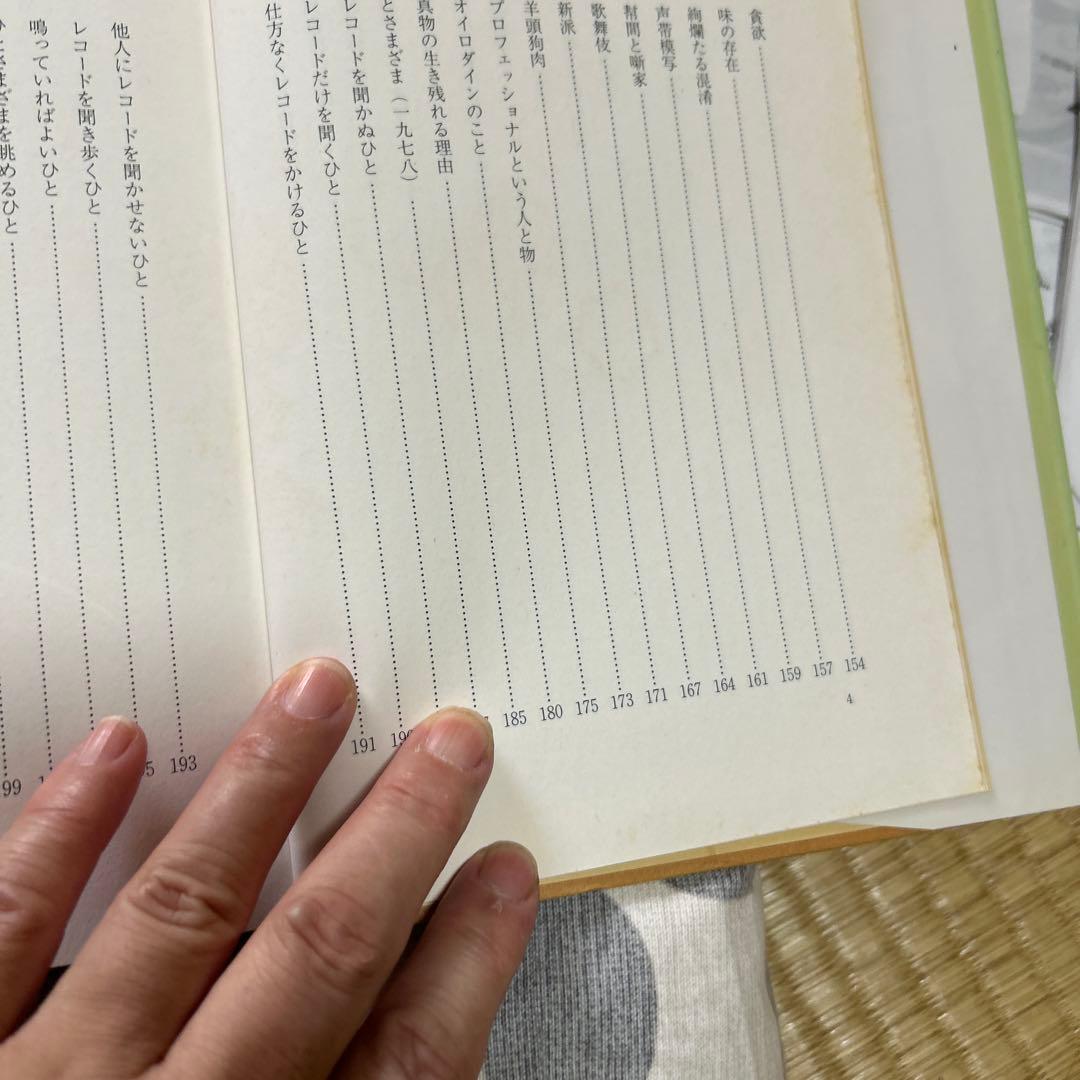 貪欲 154
味の存在 157
絢爛たる混淆 159
声帯模写 161
幇間と噺家 164
歌舞伎 167
新派 171
羊頭狗肉 173
プロフェッショナルという人と物 175
オイロダインのこと 180
真物の生き残れる理由 185
とさまざま（一九七八）
レコードを聞かぬひと
レコードだけを聞くひと
仕方なくレコードをかけるひと 191
4
他人にレコードを聞かせないひと 193
レコードを聞き歩くひと
鳴っていればよいひと
とさまざまを眺めるひと 99